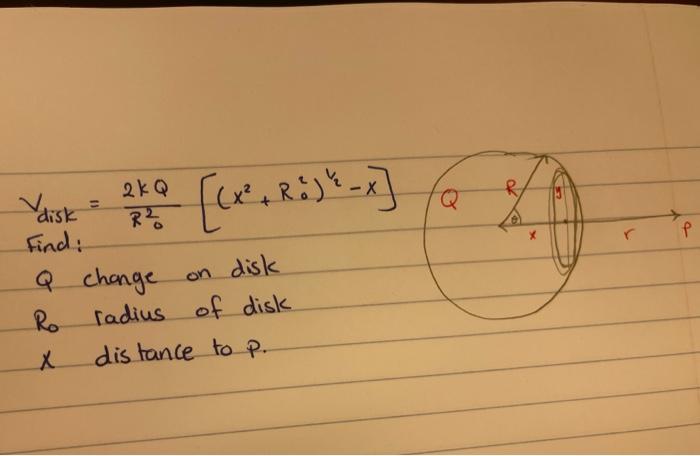 V disk = 2kQ / R₀² [(x² + R₀²)^½ - x]
Find:
Q change on disk
R₀ radius of disk
x distance to p.
Q R θ x y r P